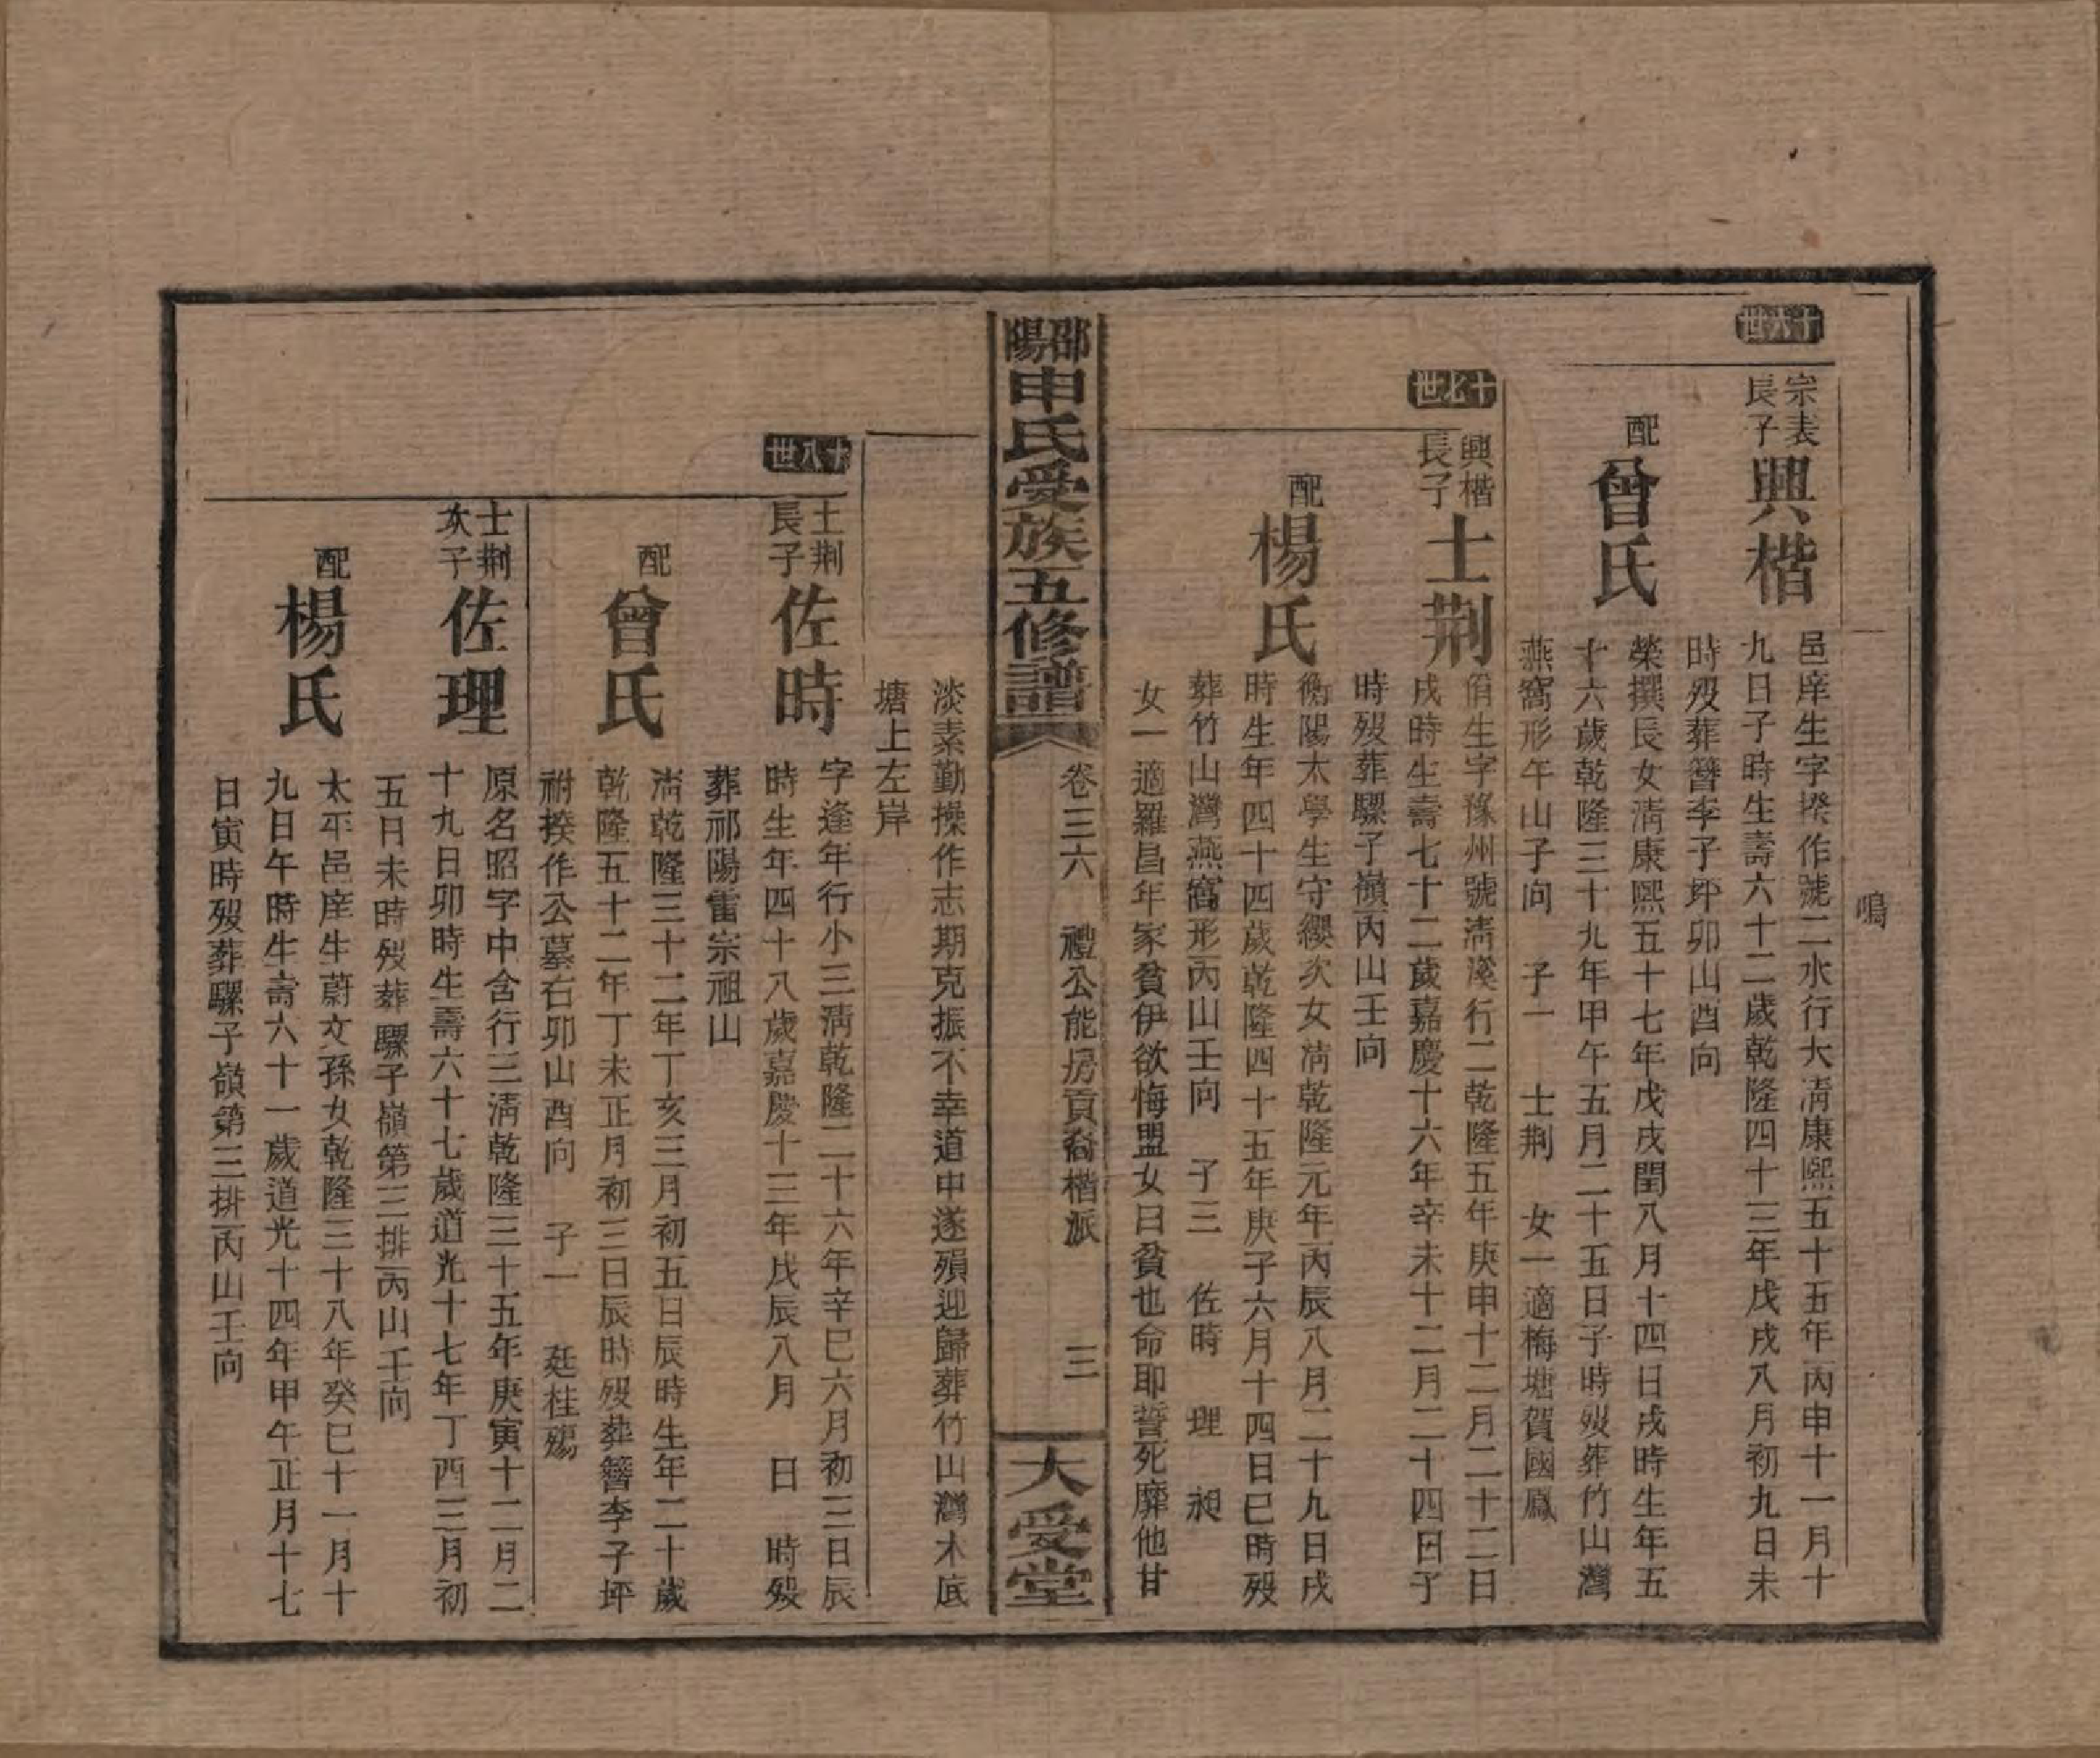 鳴
十六世
宗表長子
興楷
邑庠生字揆作號二水行大淸康熙五十五年丙申十一月十
九日子時生壽六十二歲乾隆四十三年戊戌八月初九日未
時歿葬簪李子坪卯山酉向
配
曾氏
榮撰長女淸康熙五十七年戊戌閏八月十四日戌時生年五
十六歲乾隆三十九年甲午五月二十五日子時歿葬竹山灣
燕窩形午山子向 子一 士荆 女一適梅塘賀國鳳
十七世
興楷長子
士荆
佾生字豫州號淸溪行二乾隆五年庚申十二月二十二日
戌時生壽七十二歲嘉慶十六年辛未十二月二十四日子
時歿葬騾子嶺丙山壬向
配
楊氏
衡陽太學生守纓次女淸乾隆元年丙辰八月二十九日戌
時生年四十四歲乾隆四十五年庚子六月十四日巳時歿
葬竹山灣燕窩形丙山壬向 子三 佐時 理 昶
女一適羅昌年家貧伊欲悔盟女曰貧也命耶誓死靡他甘
邵陽申氏受族五修譜
卷三六 禮公能房貢裔楷派 三
大受堂
淡素勤操作志期克振不幸道中遂殞迎歸葬竹山灣木底
塘上左岸
十八世
士荆長子
佐時
字逢年行小三淸乾隆二十六年辛巳六月初三日辰
時生年四十八歲嘉慶十三年戊辰八月 日 時歿
葬祁陽雷宗祖山
配
曾氏
淸乾隆三十二年丁亥三月初五日辰時生年二十歲
乾隆五十二年丁未正月初三日辰時歿葬簪李子坪
祔揆作公墓右卯山酉向 子一 廷桂殤
士荆次子
佐理
原名昭字中含行三淸乾隆三十五年庚寅十二月二
十九日卯時生壽六十七歲道光十七年丁酉三月初
五日未時歿葬騾子嶺第三排丙山壬向
配
楊氏
太平邑庠生蔚文孫女乾隆三十八年癸巳十一月十
九日午時生壽六十一歲道光十四年甲午正月十七
日寅時歿葬騾子嶺第三排丙山壬向